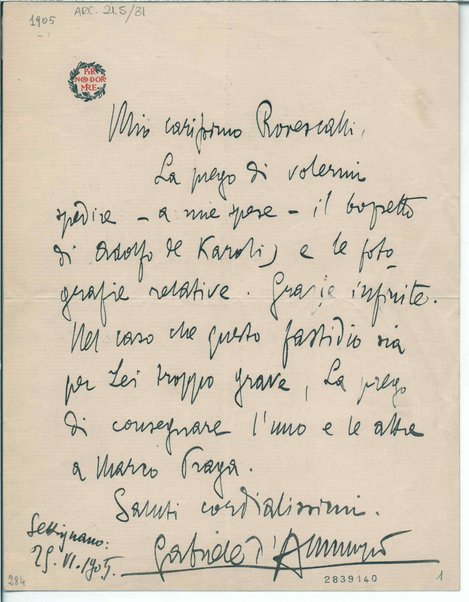 1905
ARC. 21.5/31
PER
NON DOR
MIRE
Mio carissimo Rovescalli,
La prego di volermi
spedire – a mie spese – il bozzetto
di Adolfo de Karolis e le foto
grafie relative. Grazie infinite.
Nel caso che questo fastidio sia
per Lei troppo grave, La prego
di consegnare l'uno e le altre
a Marco Praga.
Saluti cordialissimi.
Gabriele d'Annunzio
Settignano:
25. VI. 1905.
284
2839140
1